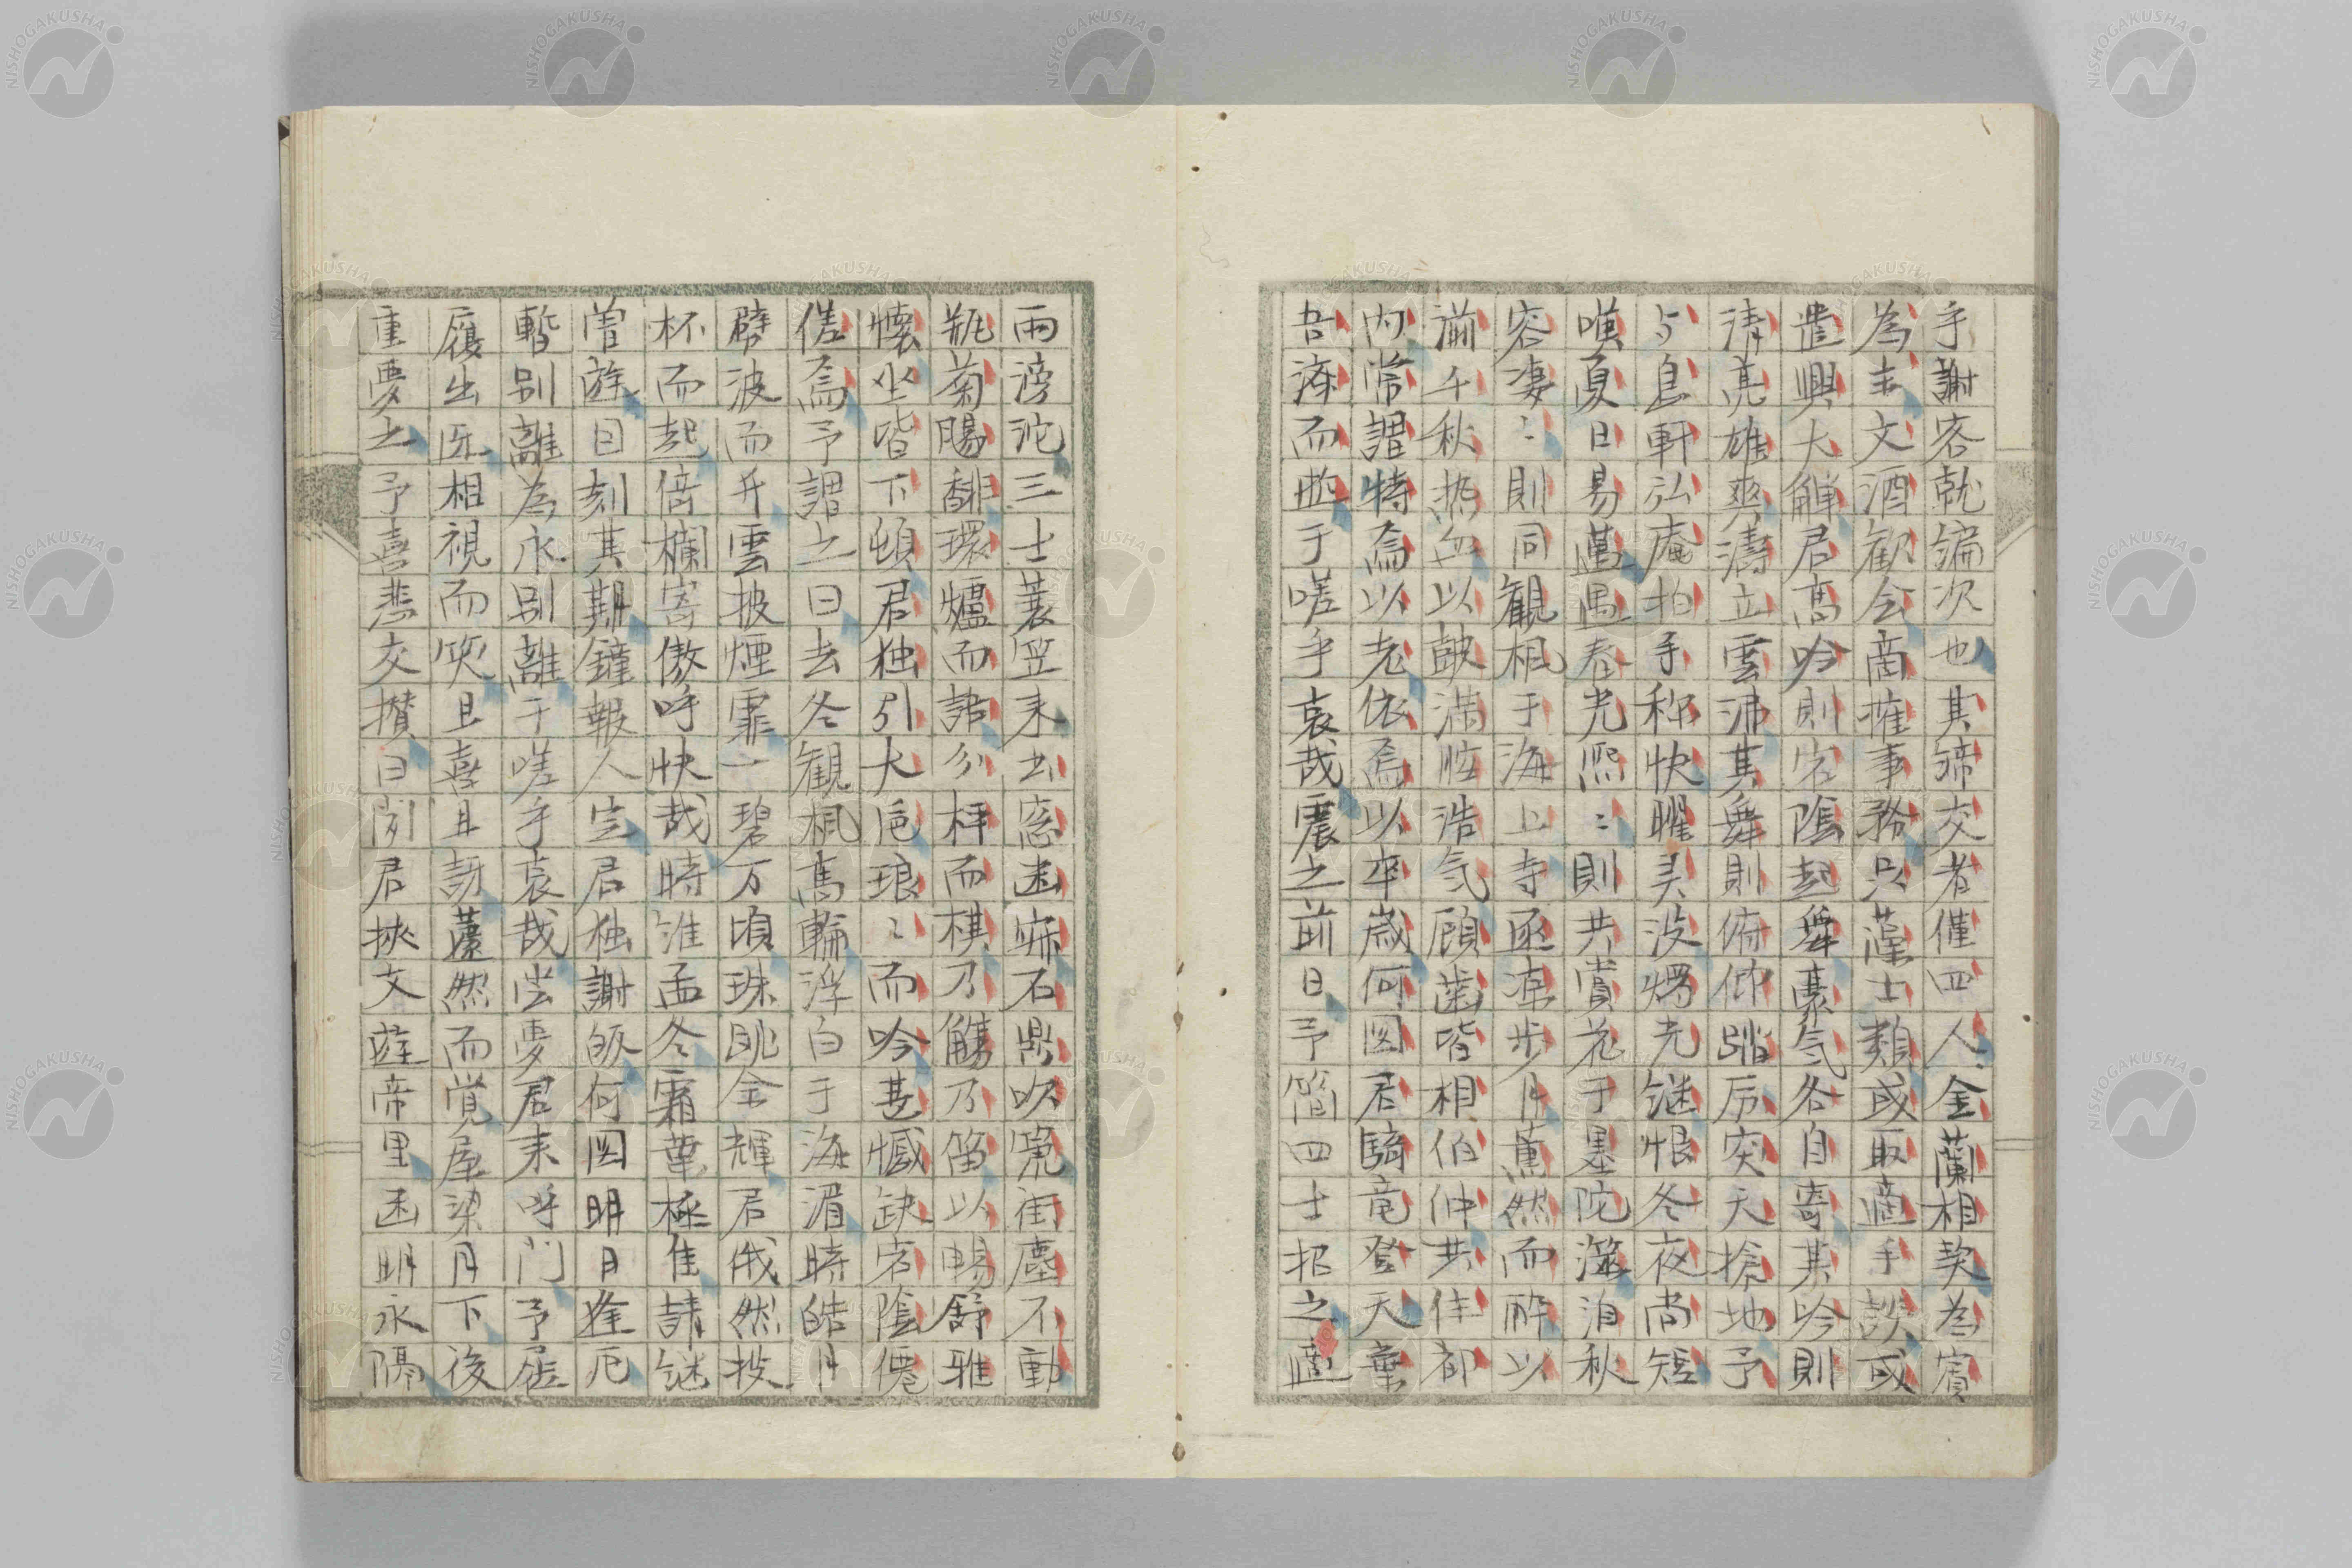 手謝容乾編次也其締交者僅四人金蘭相契為賓
為主文酒歓会商搉事務只藻士類或取適手談或
遣興大觶君高吟則宕陰起舞豪気各自寄其吟則
清亮雄爽濤立雲沸其舞則俯仰踏后突天搶地予
与息軒弘庵拍手称快曜灵没燭光継恨冬夜尚短
嘆夏日易邁遇春光熙〻則共賞花于墨陀澨泊秋
容凄〻則同観楓于海上寺函凉步月薫然而酔以
瀹千秋热血以皷満腔浩気顧齒皆相伯仲共住都
内常謂特為以老依為以卒歳何図君騎竜登天棄
吾儕而逝于嗟乎哀哉震之前日予簡四士招之適
雨滂沱三士蓑笠来出窓函寂石鼎吹寛街塵不動
瓶菊腸馡環爐而話分枰而棋乃觴乃笛以暢舒雅
懐坐皆下頓君独引大巵琅〻而吟甚憾缺宕陰僊
傞為予謂之曰去冬観楓高輪浮白于海湄時皓月
劈波而升雲披煙霏一碧万頃珠眺金輝君俄然投
杯而起倍欄寄傲呼快哉時淮孟冬霜葉極佳請継
曽遊因刻其期鐘報人定君独謝皈何図明月逢厄
暫別離為永別離于嗟乎哀哉尝夢君来呼門予屣
履出迎相視而笑且喜且訝蘧然而覚屋梁月下後
重夢之予喜悲交攅曰閉君挾文遊帝里函明永隔